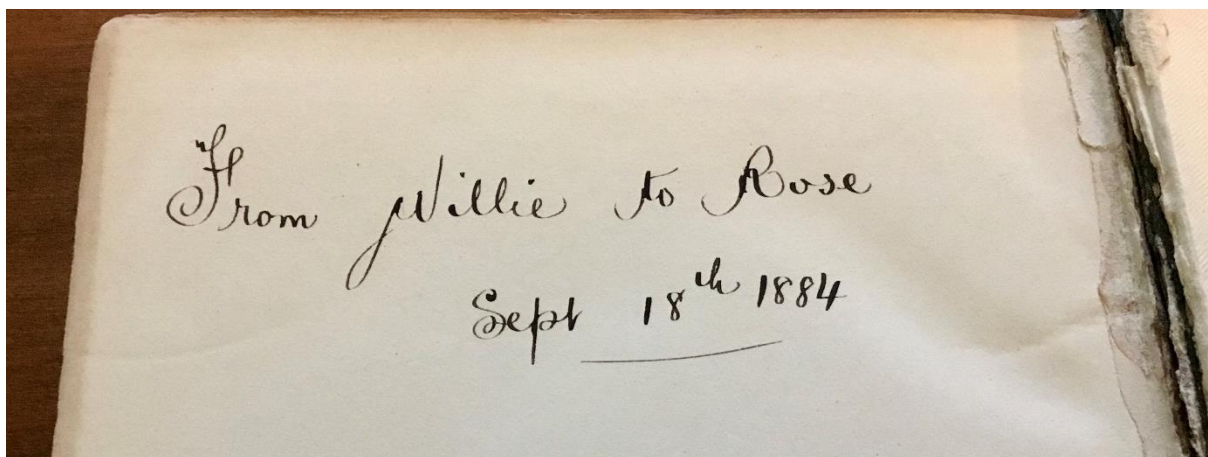 From Willie to Rose
Sept 18th 1884